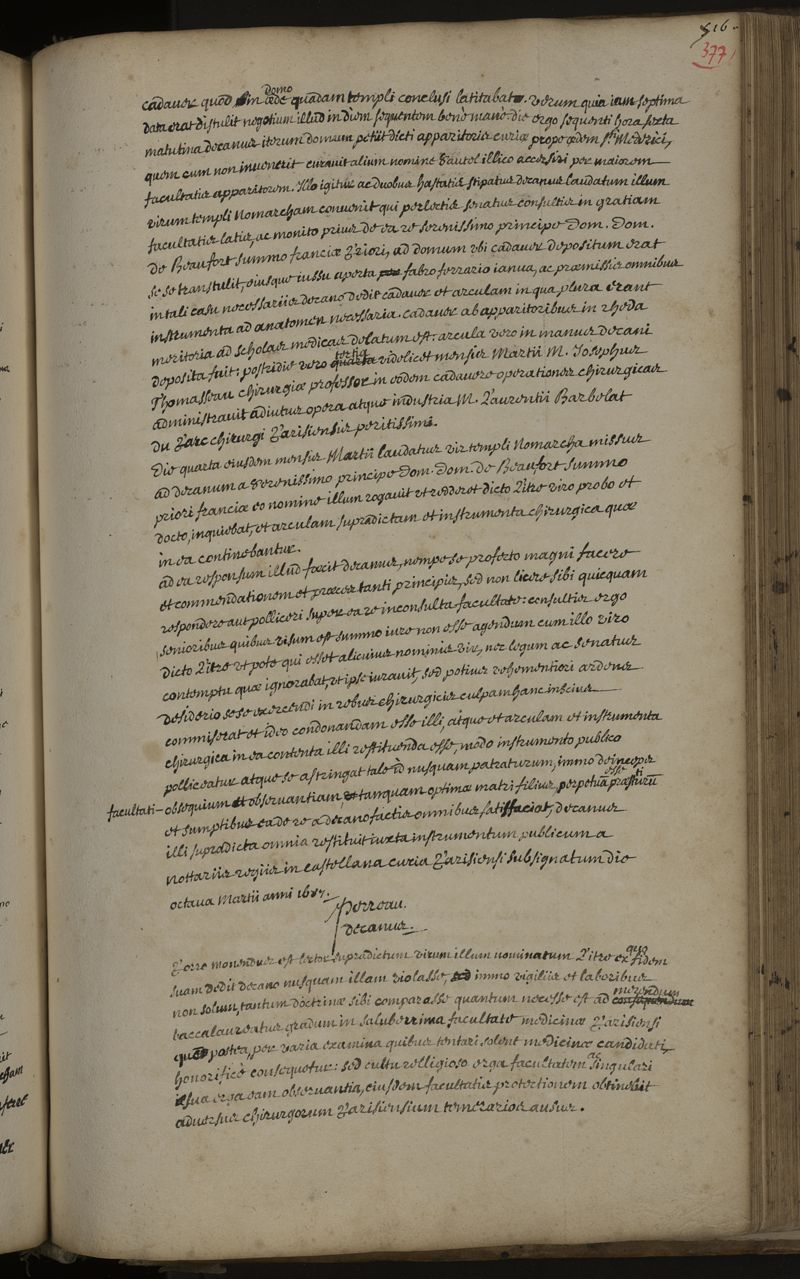 516.
377
cadauer quod in æde domo quadam templi conclusi latitabat. verum quia iam septima
data erat distulit negotium illud in diem sequentem bene mane. die ergo sequenti hora sexta
matutina decanus iterum domum petiit dicti apparitoris curiæ prope ædem Medrici,
quem cum non inuenerit curauit alium nomine Pautel illico accersiri per maiorem
facultatis apparitorem. Illo igitur ac duobus hastatis stipatus decanus laudatum illum
virum templi Nomarcham conuenit qui perlectis senatus consultis in gratiam
facultatis latis, ac monito prius de ea re serenissimo principe Dom. Dom.
de Beaufort summo franciæ Priori, ad domum vbi cadauer depositum erat
se se transtulit, eiusque iussu aperta fabro ferrario ianua, ac præmissis omnibus
in tali casu necessariis decano dedit cadauer et arculam in qua plura erant
instrumenta ad anatomen necessaria. cadauer ab apparitoribus in rheda
meritoria ad scholas medicas delatum est: arcula vero in manus decani
deposita fuit: postridie vero quarta tertia videlicet mensis Martii M. Josephus
Thomasseau chirurgiæ professor in eodem cadauere operationes chirurgicas
administrauit adiutus opera atque industria M. Laurentii Barbelat
du Parc chirurgi Parisiensis peritissimi.
Die quarta eiusdem mensis Martii laudatus vir templi Nomarcha missus
ad decanum a serenissimo principe Dom. Dom. de Beaufort summo
priori franciæ eo nomine illum rogauit vt redderet dicto Litre viro probo et
docto, inquiebat, et arculam supradictam et instrumenta chirurgica quæ
in ea continebantur.
ad ea responsum illud fecit decanus, nempe se profecto magni facere
et commendationem et preces tanti principis, sed non licere sibi quicquam
respondere aut polliceri super ea re inconsulta facultate: consultis ergo
senioribus quibus visum est summo iure non esse agendum cum illo viro
dicto Litre vt pote qui esset alicuius nominis vir, nec legum ac senatus
contemptu quæ ignorabat, vt ipse iurauit, sed potius vehementiori ardens
desiderio sese exercendi in rebus chirurgicis culpam hanc inscius
commiserat et ideo condonandam esse illi, atque et arculam et instrumenta
chirurgica in ea contenta illi restituenda esse, modo instrumento publico
polliceatur atque se astringat tale id nusquam patraturum, immo de se
facultati - obsequium et obseruantiam tanquam optimæ matri filius, perpetuo præstiturum esse
et sumptibus ea de re a decano factis omnibus satisfaciat, decanus
illi supradicta omnia restituit iuxta instrumentum publicum a
nottariis regiis in castellana curia Parisiensi subsignatum die
octaua Martii anni 1687.
Perreau.
decanus.
Porro monendus est lector supradictum virum illum nominatum Litre ex quo fidem
suam dedit decano nusquam illam violasse, sed immo vigiliis et laboribus
non solum tantum doctrinæ sibi comparasse quantum necesse est ad consequendum merendum
baccalaureatus gradum in saluberrima facultate medicinæ Parisiensi
quem postea, per varia examina quibus tentari solent medicinæ candidati,
honorifice consequetur: sed cultu relligioso erga facultatem ac singulari
sua erga eam obseruantia, eiusdem facultatis protectionem obtinebit
aduersus chirurgorum Parisiensium temerarios ausus.